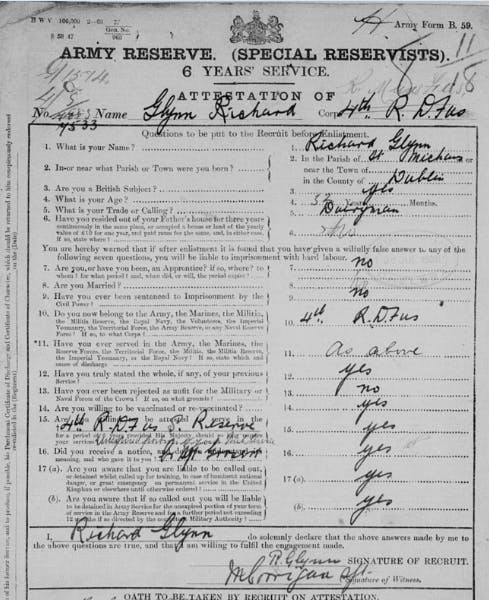 Army Form B. 59.
ARMY RESERVE. (SPECIAL RESERVISTS).
6 YEARS' SERVICE.
ATTESTATION OF
No. 7533 Name Glynn Richard Corps 4th R. D. Fus
Questions to be put to the Recruit before Enlistment.
1. What is your Name? Richard Glynn
2. In or near what Parish or Town were you born? 2. In the Parish of St
near the Town of
in the County of Dublin
3. Are you a British Subject? 3. Yes
4. What is your Age? 4. Years Months.
5. What is your Trade or Calling? 5. Dairyman
6. Have you resided out of your Father's house for three years
continuously in the same place, or occupied a house or land of the yearly
value of £10 for one year, and paid rates for the same, and, in either case,
if so, state where? 6.
You are hereby warned that if after enlistment it is found that you have given a wilfully false answer to any of the
following seven questions, you will be liable to imprisonment with hard labour.
7. Are you, or have you been, an Apprentice? if so, where? to
whom? for what period? and, when did, or will, the period expire? 7. no
8. Are you Married? 8.
9. Have you ever been sentenced to Imprisonment by the
Civil Power? 9. no
10. Do you now belong to the Army, the Marines, the Militia,
the Militia Reserve, the Royal Navy, the Volunteers, the Imperial
Yeomanry, the Territorial Force, the Army Reserve, or any Naval Reserve
Force? If so, to what Corps? 10. 4th R. D. Fus
*11. Have you ever served in the Army, the Marines, the
Reserve Forces, the Territorial Force, the Militia, the Militia Reserve,
the Imperial Yeomanry, or the Royal Navy? If so, state which and
cause of discharge 11. As above
12. Have you truly stated the whole, if any, of your previous
Service? 12. yes
13. Have you ever been rejected as unfit for the Military or
Naval Forces of the Crown? If so, on what grounds? 13. no
14. Are you willing to be vaccinated or re-vaccinated? 14. yes
15. Are you willing to be attested for service in the
4th R. D. Fus S. Reserve
for a period of 6 years provided His Majesty should so long require
your services 15. yes
16. Did you receive a notice,
meaning, and who gave it to you? 16. yes
17 (a). Are you aware that you are liable to be called out,
or detained whilst called up for training, in case of imminent national
danger, or great emergency on permanent service in the United
Kingdom or elsewhere until otherwise ordered? 17 (a) yes
(b). Are you aware that if so called out you will be liable
to be detained in Army Service for the unexpired portion of your term
of service in the Army Reserve and for a further period not exceeding
12 months if so directed by the competent Military Authority? (b). yes
I, Richard Glynn do solemnly declare that the above answers made by me to
the above questions are true, and that I am willing to fulfil the engagement made.
R. Glynn SIGNATURE OF RECRUIT.
M Corrigan Sgt. Signature of Witness.
OATH TO BE TAKEN BY RECRUIT ON ATTESTATION.